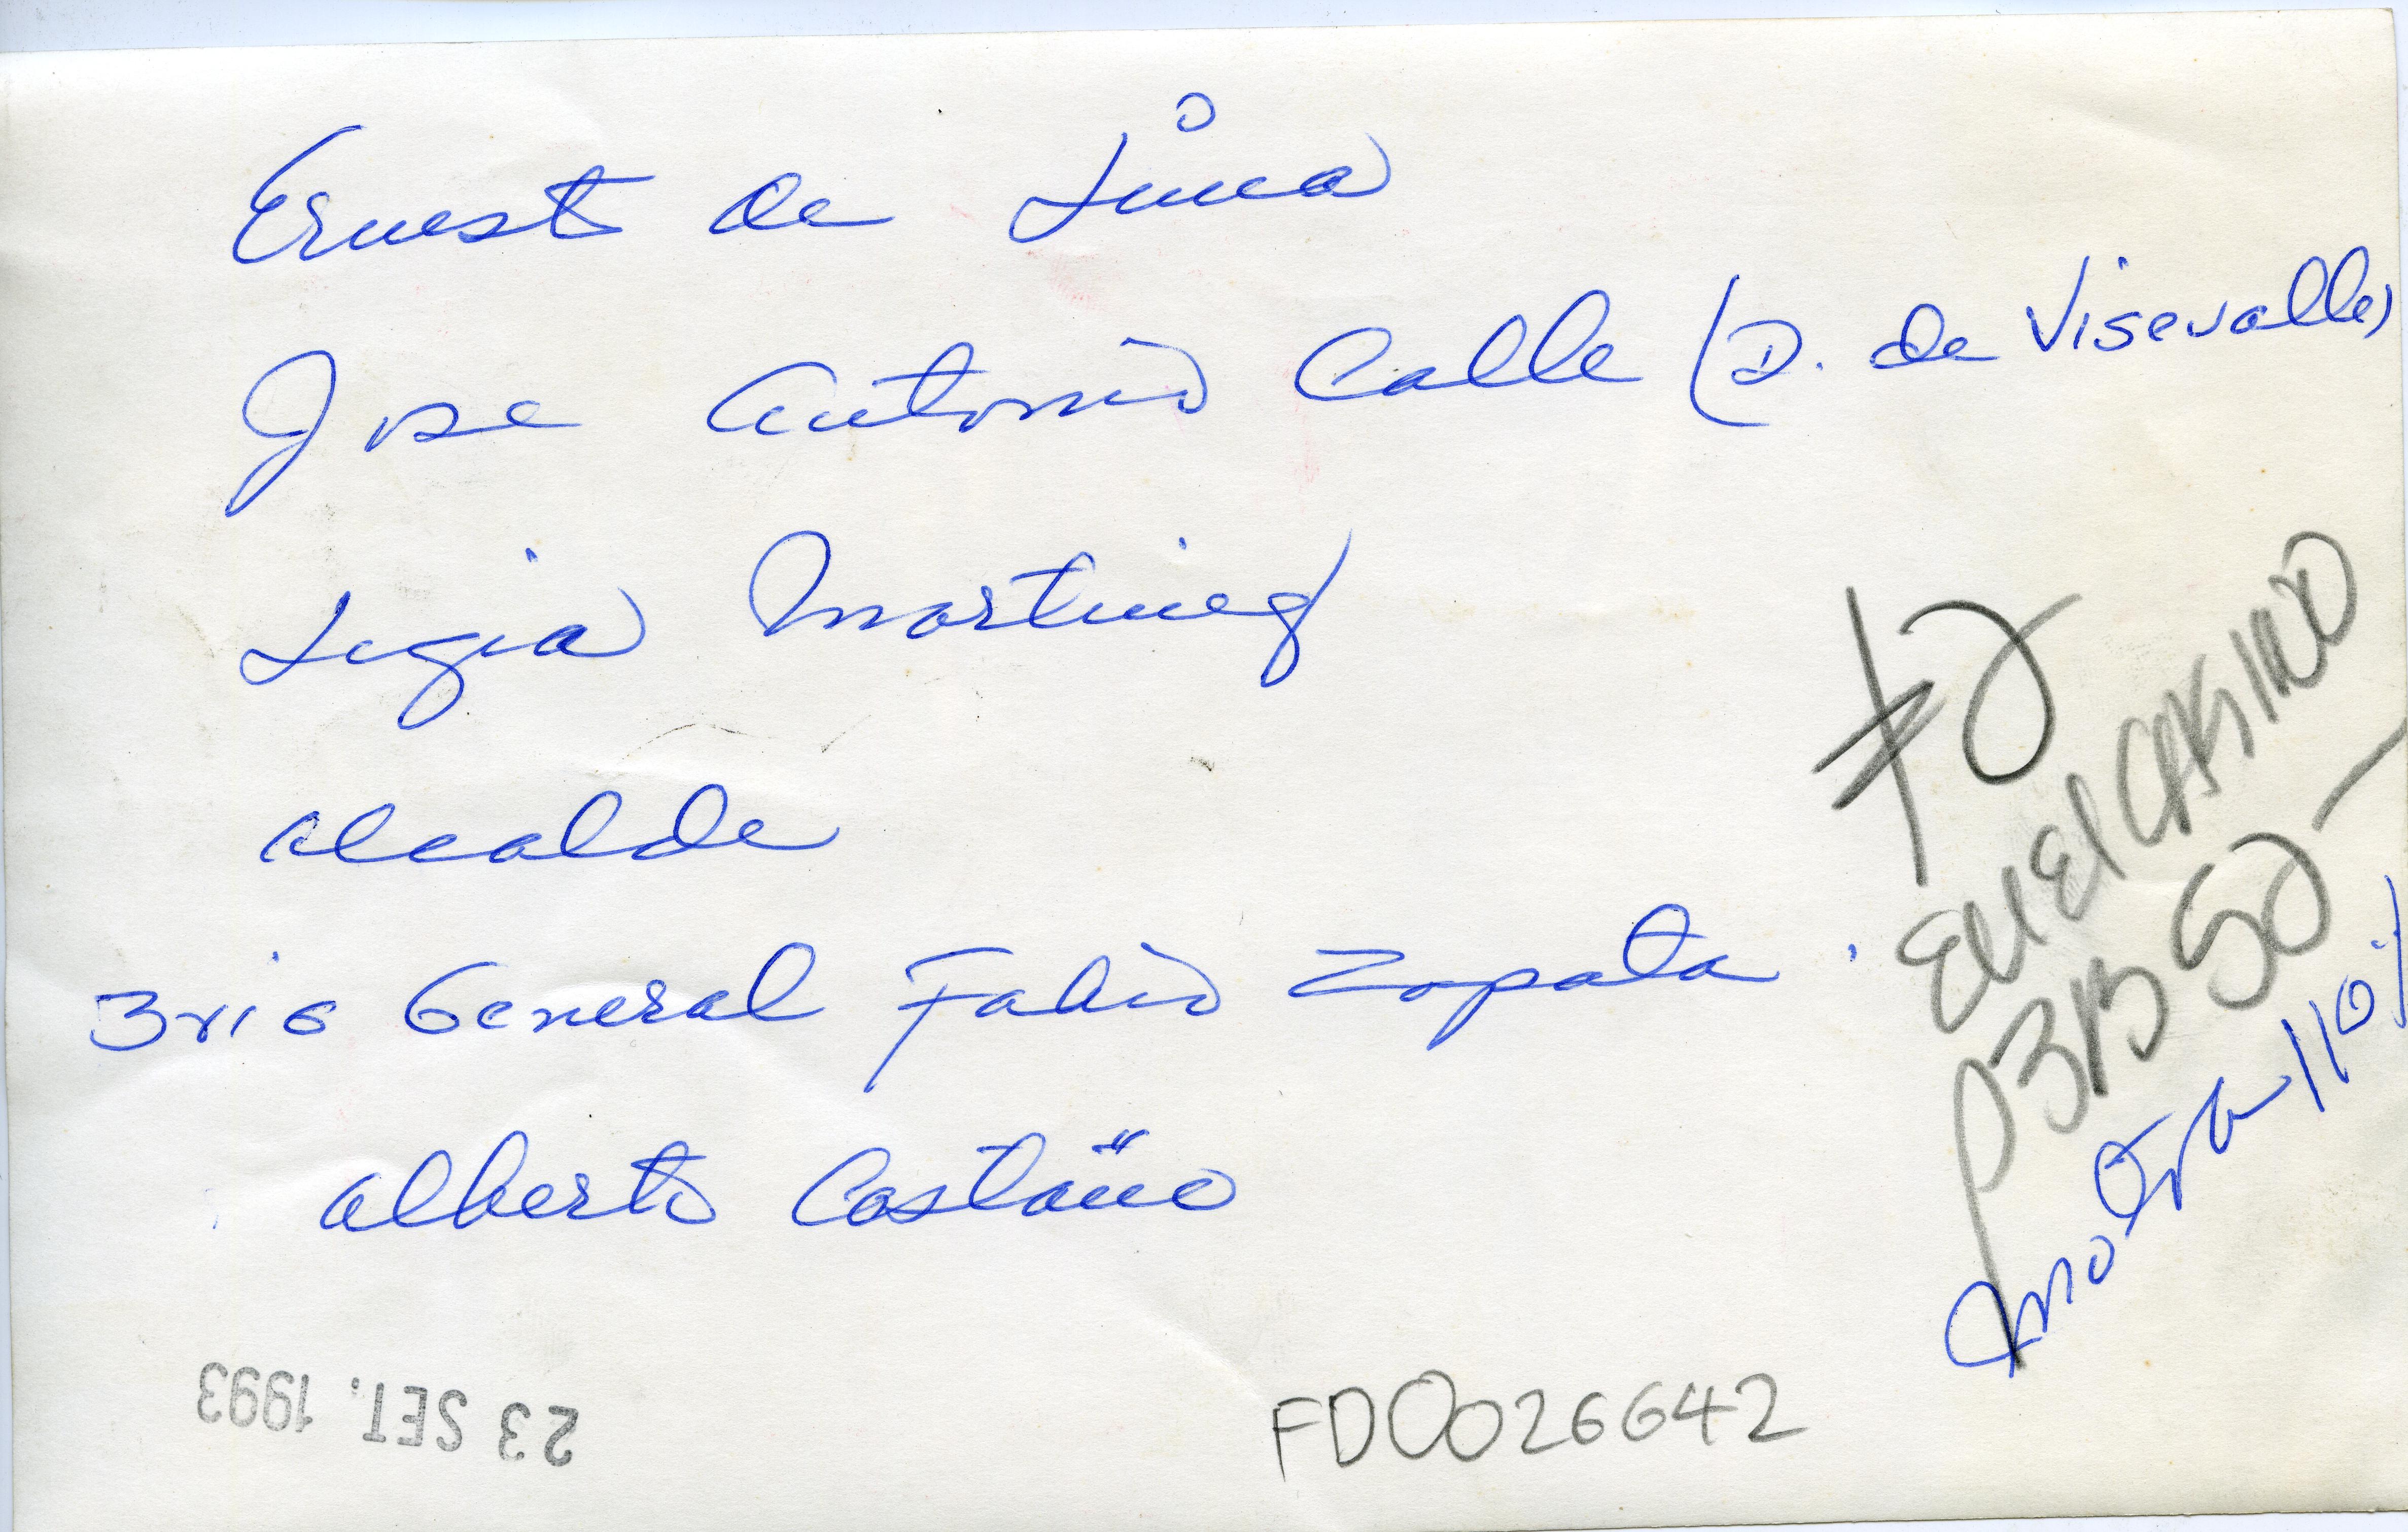 Ernest de Lima
Jose Antonio Calle (D. de Visevalle)
Ligia Martinez
Alcalde
Brig General Fabio Zapata
Alberto Castaño
#2
EN El CASINO
P3B 52
23 SET. 1993
FD0026642